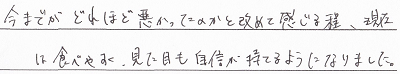 今までが どれほど悪かったのかと改めて感じる程、現在
は食べやすく、見た目も自信が持てるようになりました。